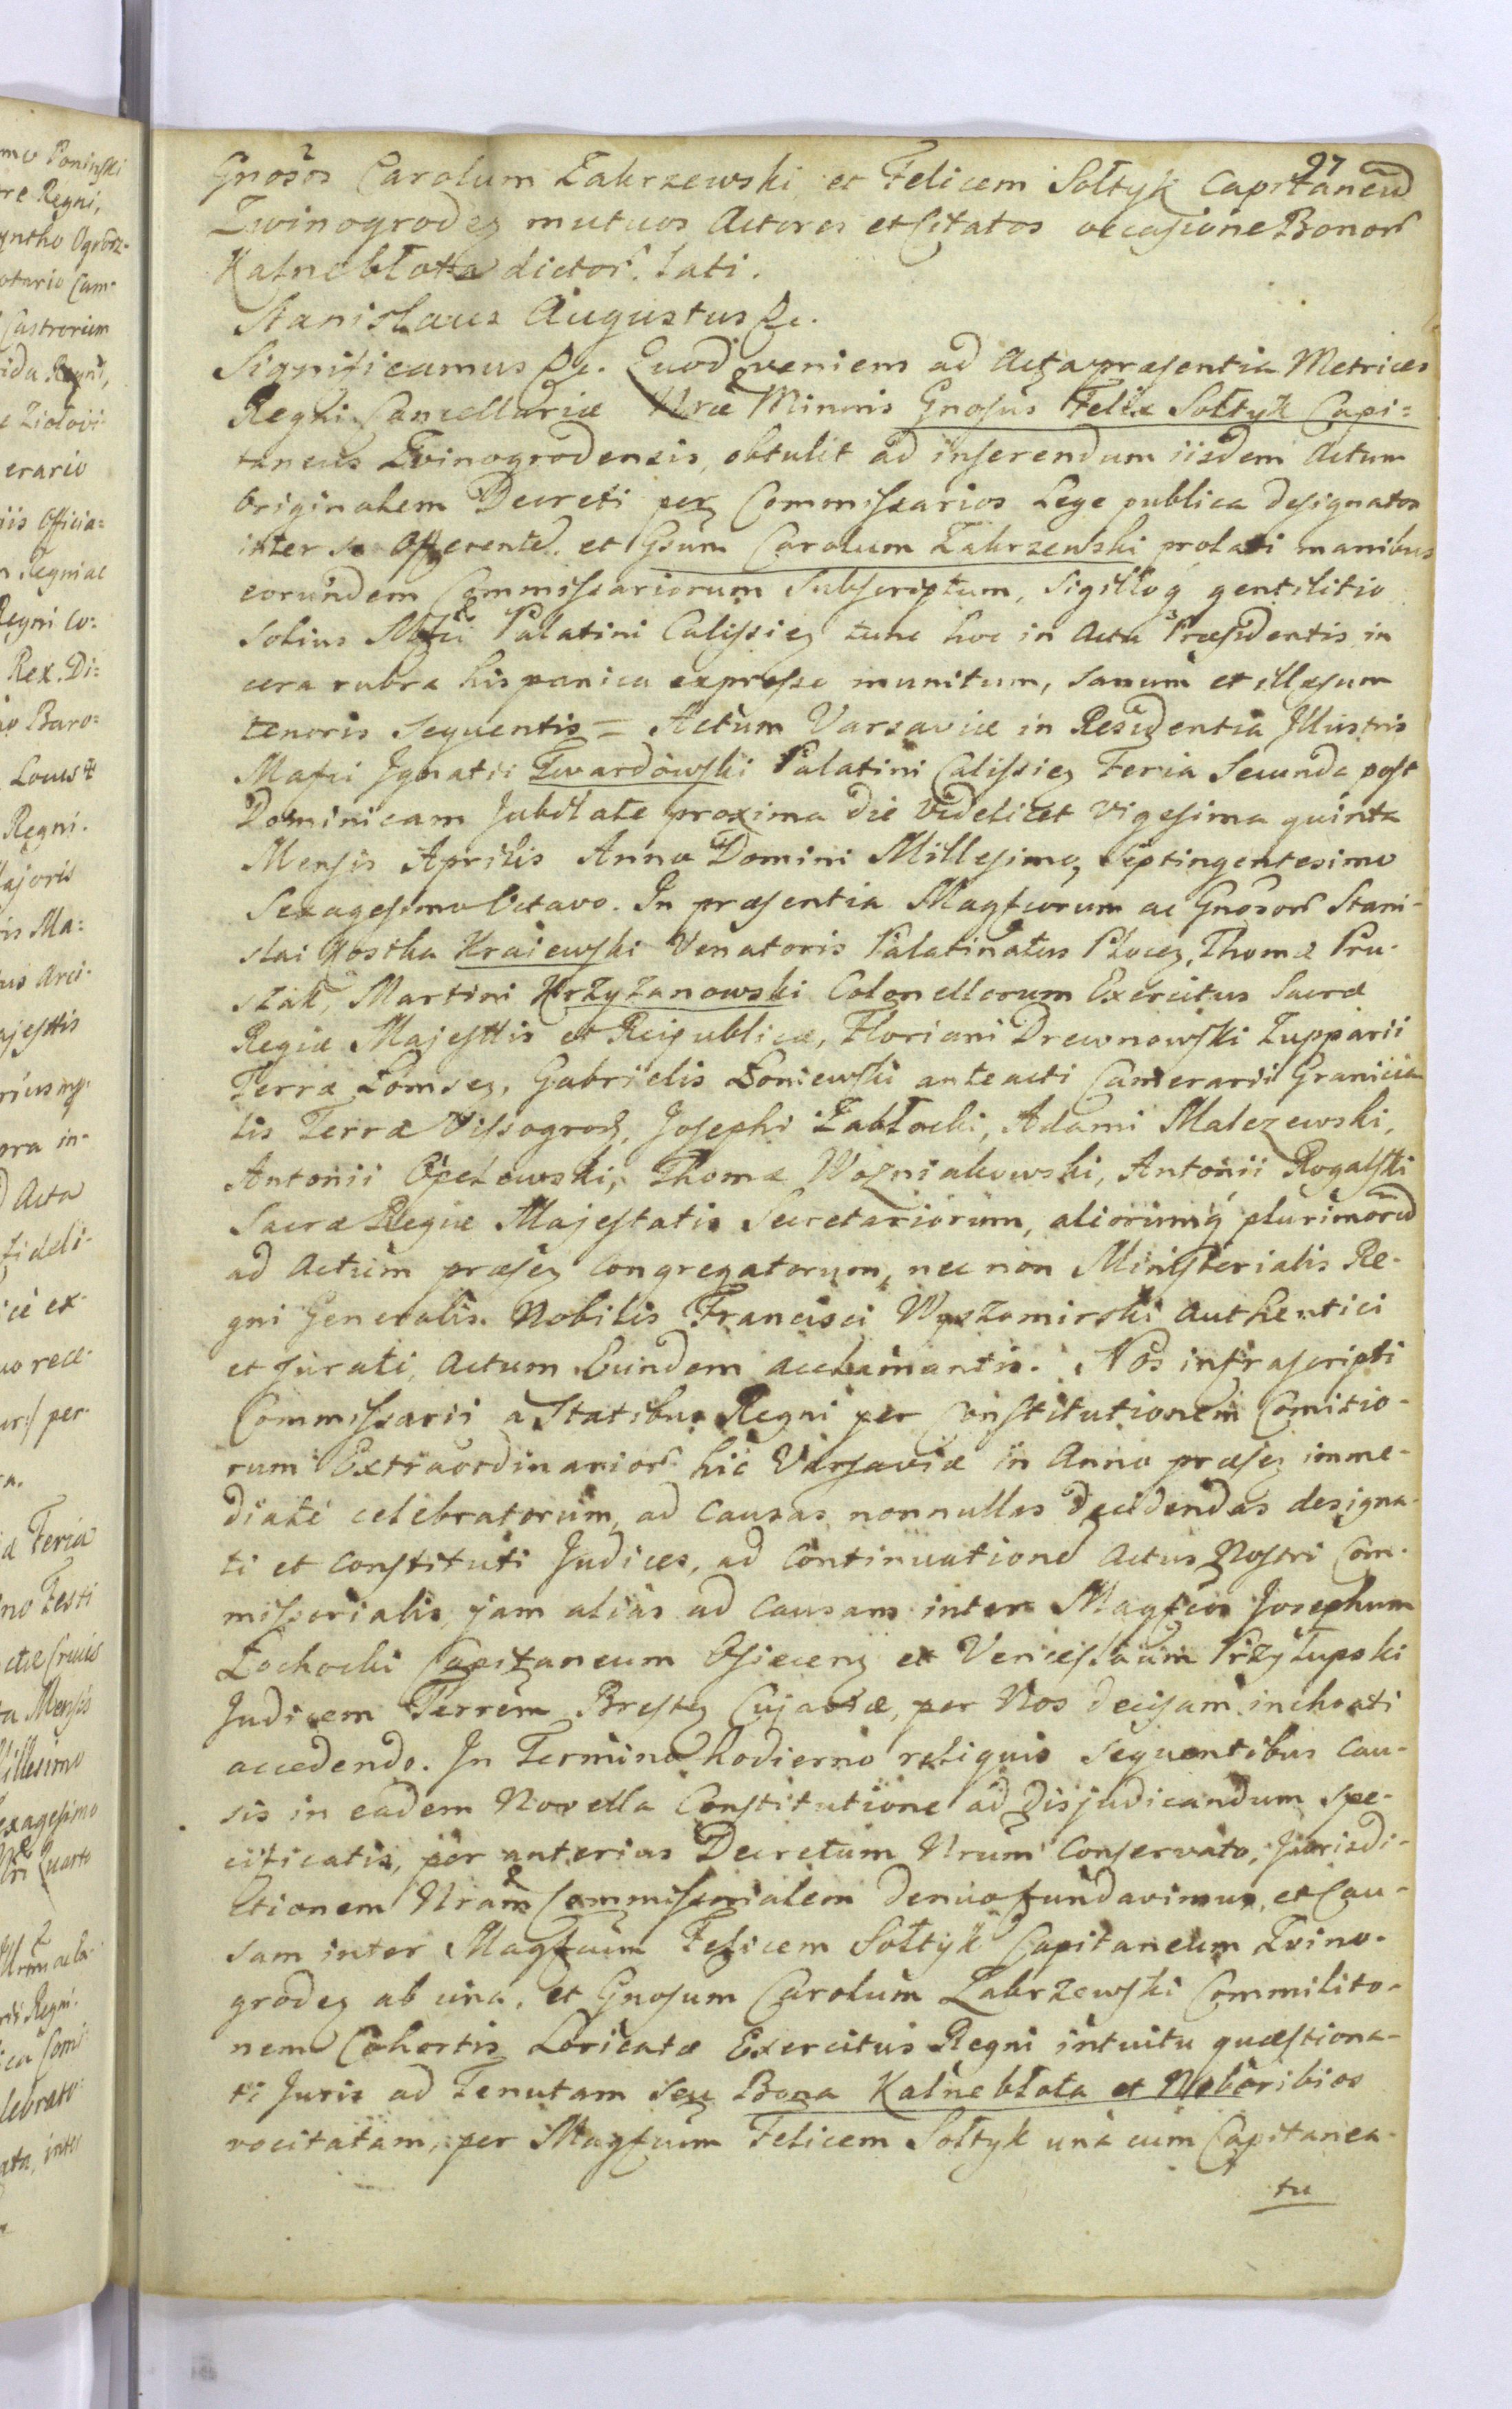 97
Gnosos Carolum Zakrzewski et Felicem Sołtyk Capitaneū
Zwinogrodeɳ mutuos Actores et Citatos occasione Bonor̃
Kalnebłotta dictor̃ lati.
Stanislaus Augustus &c.
Significamus &c. Quod veniens ad Acta præsentia Metrices
Regni Cancellariæ Nræ Minoris Gnosus Felix Sołtyk Capi=
taneus Zvinogrodensis, obtulit ad inserendum iisdem Actum
Originalem Decreti per Commissarios Lege publica designatos
inter se Offerentē et Gsum Carolum Zakrzewski prolati manibus
eorundem Commissariorum Subscriptum, Sigilloq gentilitio
solius Mgfci Palatini Calissieɳ tunc hoc in Actu Præsidentis in
cera rubra hispanica expresso munitum, sanum et illæsum
tenoris sequentis = Actum Varsaviæ in Residentia Illustris
Mgfci Ignatii Twardowski Palatini Calissieɳ Feria Secunda post
Dominicam Jubilate proxima die videlicet vigesima quinta
Mensis Aprilis Anno Domini Millesimo Septingentesimo
Sexagesimo Octavo. In præsentia Magfcorum ac Gnosor̃ Stani-
slai Kostka Kraiewski Venatoris Palatinatus Ploceɳ, Thomæ Pru-
szak, Martini Krzyzanowski Colonellorum Exercitus Sacræ
Regiæ Majesttis et Reipublicæ, Floriani Drewnowski Zupparii
Terræ Lomzeɳ, Gabrielis Łoniewski anteacti Camerarii Granicia-
lis Terræ Vissogroɖ, Josephi Zabłocki, Adami Malczewski,
Antonii Opetowski, Thomæ Wozniakowski, Antonii Rogalski
Sacræ Regiæ Majestatis Secretariorum, aliorumq́ plurimorū
ad Actum præseɳ congregatorum, nec non Ministerialis Re-
gni Generalis Nobilis Francisci Wyszomirski Authentici
et jurati, Actum Eundem acclamantis. Nos infrascripti
Commissarii a Statibus Regni per Constitutionem Comitio-
rum Extraordinarior̃ hic Varsaviæ in Anno præseɳ imme-
diate celebratorum, ad Causas nonnullas decidendas designa-
ti et constituti Judices, ad continuationē Actus Nostri Com-
missorialis jam alias ad causam inter Magfcos Josephum
Zochocki Capitaneum Osieceɳ et Venceslaum Przyłupski
Judicem Terrēm Bresteɳ Cujaviæ, per Nos decisam inchoati
accedendo. In Termino hodierno reliquis sequentibus Cau-
sis in eadem Novella Constitutione ad disjudicandum spe-
cificatis, per anterius Decretum Nrum Conservato, Jurisdi-
ctionem Nram Commissorialem denuo fundavimus, et Cau-
sam inter Magfcum Felicem Sołtyk Capitaneum Zvino-
grodeɳ ab una, et Gnosum Carolum Zakrzewski Commilito-
nem Cohortis Loricatæ Exercitus Regni intuitu quæstiona-
ti Juris ad Tenutam seu Bona Kalnebłota et Neboribios
vocitatam, per Magfcum Felicem Sołtyk una cum Capitanea-
tu